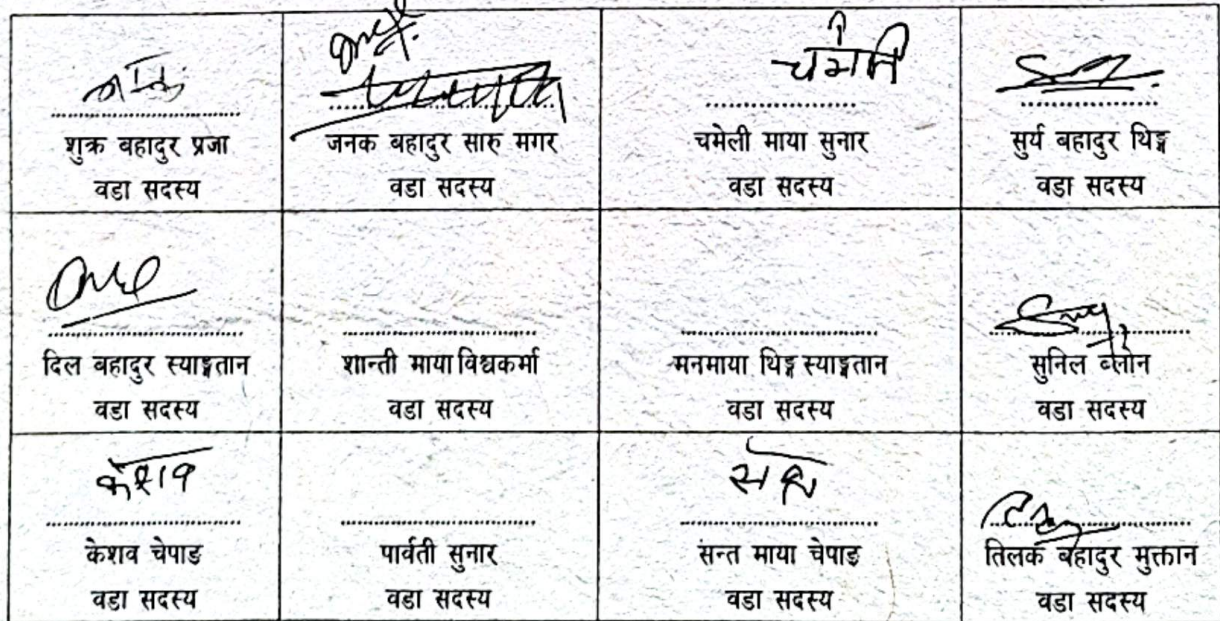 शुक्र बहादुर प्रजा
वडा सदस्य
जनक बहादुर सारु मगर
वडा सदस्य
चमेली
चमेली माया सुनार
वडा सदस्य
सुर्य बहादुर थिङ्ग
वडा सदस्य
दिल बहादुर स्याङ्गतान
वडा सदस्य
शान्ती माया विश्वकर्मा
वडा सदस्य
मनमाया थिङ्ग स्याङ्गतान
वडा सदस्य
सुनिल ब्लोन
वडा सदस्य
केशव
केशव चेपाङ
वडा सदस्य
पार्वती सुनार
वडा सदस्य
सन्त माया चेपाङ
वडा सदस्य
तिलक बहादुर मुक्तान
वडा सदस्य